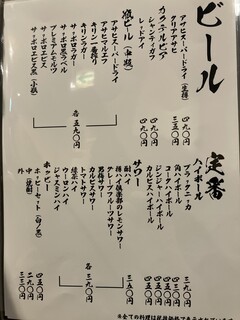 ビール
アサヒスーパードライ(生樽) 四九〇円
クリアアサヒ 三五〇円
カクテルビア
シャンディガフ 四九〇円
レッドアイ 四九〇円
瓶ビール(中瓶)
アサヒスーパードライ
アサヒマルエフ
キリン一番搾り
キリンラガー
サッポロラガー
サッポロ黒ラベル
プレミアムモルツ
サッポロエビス
サッポロエビス黒(小瓶)
各 五九〇円
定番
ハイボール
ブラックニッカ 三九〇円
角ハイボール 四五〇円
コークハイボール 四五〇円
ジンジャーハイボール 四五〇円
カルピスハイボール 四五〇円
サワー
酎ハイ 三五〇円
檸檬サワー
グレープフルーツサワー
男梅サワー
カルピスサワー
トマトサワー
緑茶ハイ
ウーロンハイ
ジャスミンハイ
各 三九〇円
ホッピー
ホッピーセット(白/黒) 四五〇円
中(焼酎) 二九〇円
外 三三〇円
※全ての料理は税抜価格で表示されています